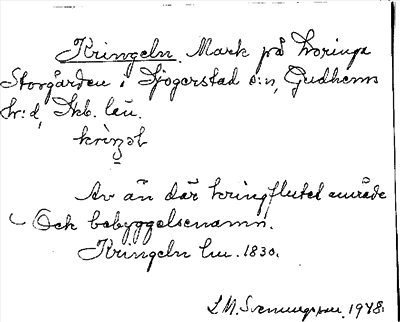 Kringeln. Mark på Loringa
Storgården i Sjogerstad s:n, Gudhems
h:d, Skb. län.
Av ån där kringflutet område
Och bebyggelsenamn.
Kringeln lm. 1830.
L M. Svenungsson. 1948.